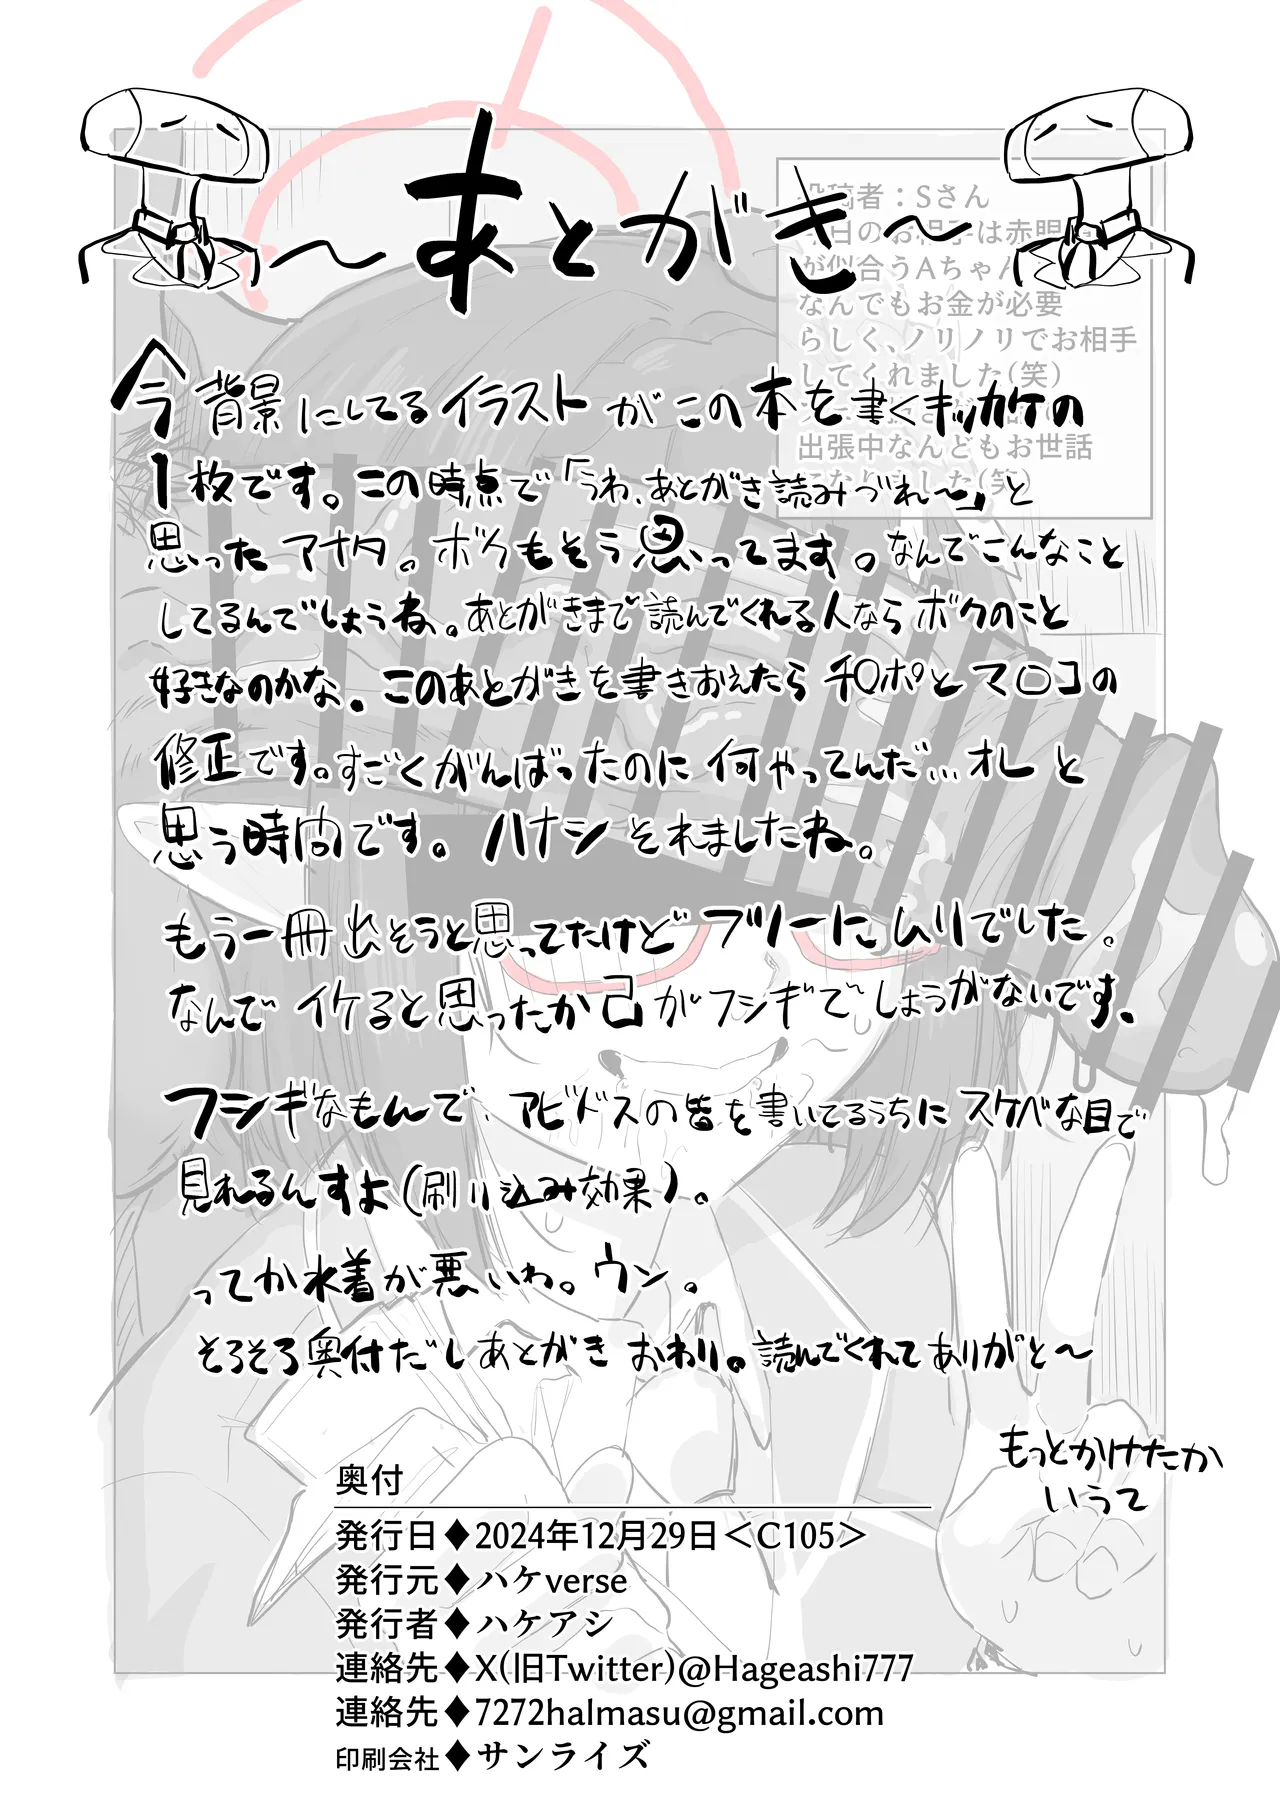 ～あとがき～
投稿者：Sさん
今日のお相手は赤眼鏡
が似合うAちゃん
なんでもお金が必要
らしく、ノリノリでお相手
してくれました(笑)
出張中なんどもお世話
になりました(笑)
今背景にしてるイラストがこの本を書くキッカケの
1枚です。この時点で「うわ、あとがき読みづれ〜」と
思ったアナタ。ボクもそう思ってます。なんでこんなこと
してるんでしょうね。あとがきまで読んでくれる人ならボクのこと
好きなのかな、このあとがきを書きおえたらチ○ポとマ○コの
修正です。すごくがんばったのに何やってんだ…オレと
思う時間です。ハナシそれましたね。
もう一冊出そうと思ってたけどフツーにムリでした。
なんでイケると思ったか己がフシギでしょうがないです、
フシギなもんで、アビドスの皆を書いてるうちにスケベな目で
見れるんすよ(刷り込み効果)。
ってか水着が悪いわ。ウン。
そろそろ奥付だしあとがきおわり。読んでくれてありがと〜
もっとかけたか
いうて
奥付
発行日♦2024年12月29日＜C105＞
発行元♦ハケverse
発行者♦ハケアシ
連絡先♦X(旧Twitter)@Hageashi777
連絡先♦7272halmasu@gmail.com
印刷会社♦サンライズ